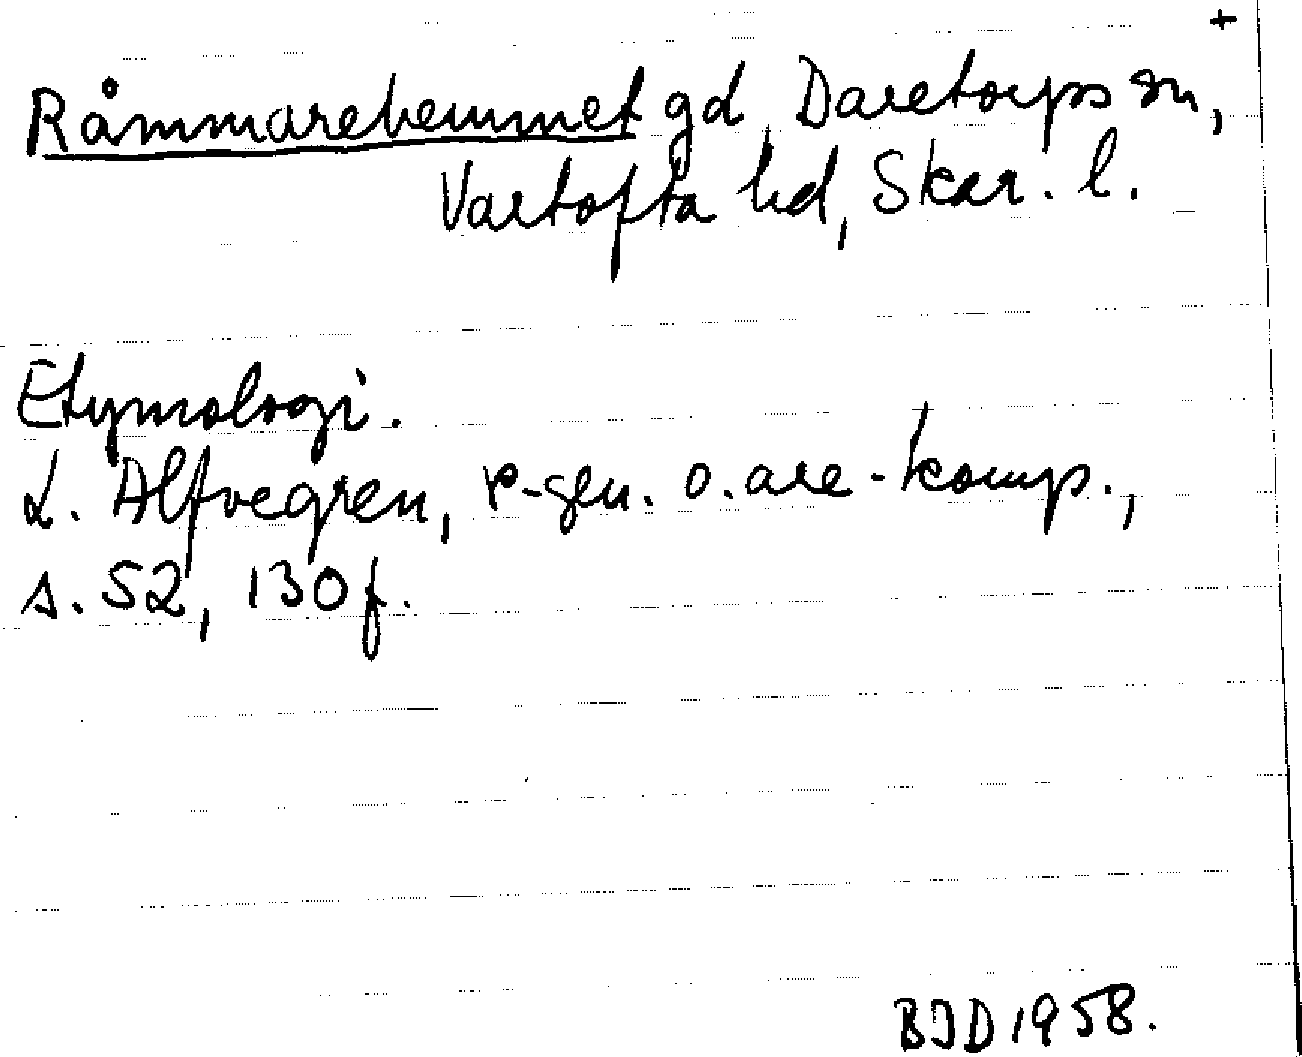 +
Råmmarehemmet gd Daretorps sn,
Vartofta hd, Skar. l.
Etymologi.
L. Alfvegren, r-gen. o. are-komp.,
s. 52, 130 f.
BJD 1958.